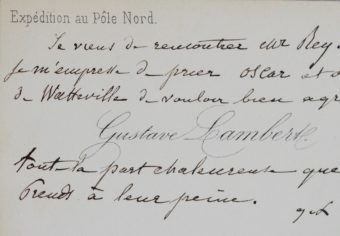 Expédition au Pôle Nord.
Je viens de rencontrer Mr Rey.
Je m'empresse de prier Oscar et
de Watteville de vouloir bien agr
Gustave Lambert
toute la part chaleureuse que
prends à leur peine.
g L